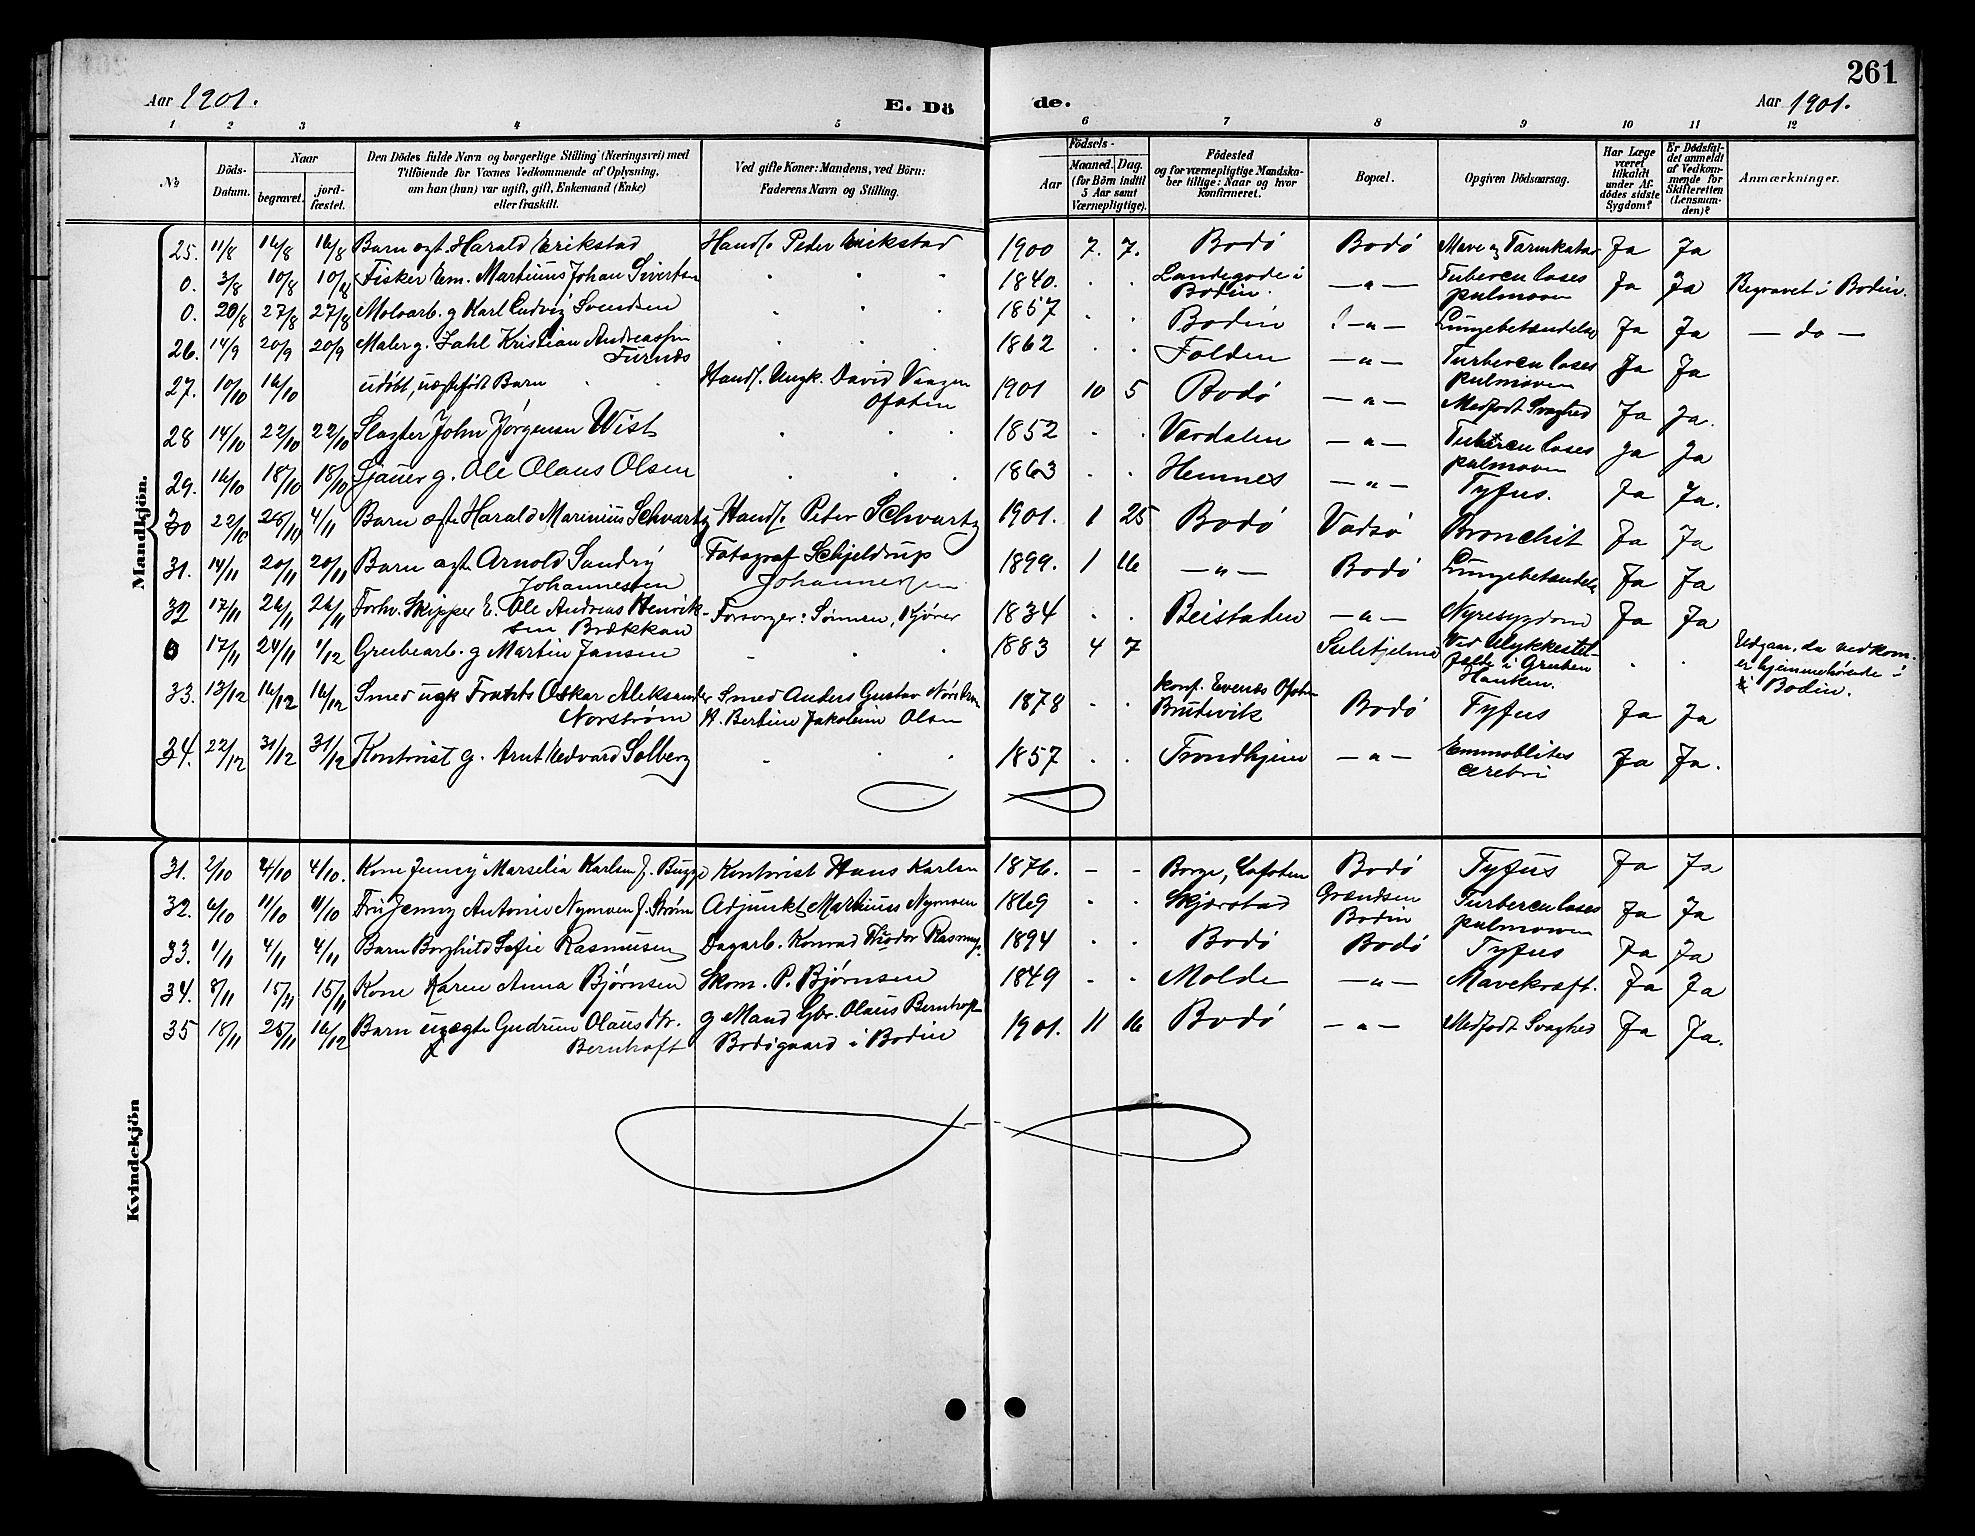 261
Aar 1901. E. Dö de. Aar 1901.
1 2 3 4 5 6 7 8 9 10 11 12
№
Döds-Datum.
Naar
begravet. jordfæstet.
Den Dödes fulde Navn og borgerlige Stilling (Næringsvei) med
Tilföiende for Voxnes Vedkommende af Oplysning,
om han (hun) var ugift, gift, Enkemand (Enke)
eller fraskilt.
Ved gifte Koner: Mandens, ved Börn:
Faderens Navn og Stilling.
Födsels-
Aar Maaned. Dag.
(for Börn indtil
5 Aar samt
Værnepligtige).
Födested
og for værnepligtige Mandska-
ber tillige: Naar og hvor
konfirmeret.
Bopæl.
Opgiven Dödsaarsag.
Har Læge
været
tilkaldt
under Af-
dödes sidste
Sygdom?
Er Dödsfal-
det anmeldt
af Vedkom-
mende for
Skifteretten
(Lensman-
den)?
Anmærkninger.
Mandkjön.
25. 11/8 16/8 16/8 Barn ægt. Harald Erikstad Handl. Peder Erikstad 1900 7. 7. Bodö Bodö Mave og Tarmkatar Ja Ja
0. 3/8 10/8 10/8 Fisker Em. Martinus Johan Sivertsen " " 1840. . . Landegode i Bodin. —"— Tuberculoses pulmonen Ja Ja Begravet i Bodin.
0. 20/8 27/8 27/8 Moloarb. g Karl Ludvig Svendsen 1857 . . Bodin ! —"— Lungebetændelse Ja Ja — do —
26. 14/9 20/9 20/9 Maler g. Zahl Kristian Andreassen Furnes 1862 . . Folden —"— Turberculoses pulmonen Ja Ja
27. 10/10 16/10 udöbt, uægtefödt Barn Handl. Ungk. David Ofoten 1901 10 5 Bodö —"— Medfodt Svaghed Ja Ja.
28 14/10 22/10 22/10 Slagter John Jørgensen Wist 1852 . . Værdalen —"— Tuberculoses pulmonen Ja Ja
29. 16/10 18/10 18/10 Sjauer g. Ole Olaus Olsen 1863 . . Hemnes —"— Tyfus. Ja Ja.
30 22/10 28/10 4/11 Barn ægte Harald Marinius Schvartz Handl. Peter Schvartz 1901. 1 25 Bodö Vadsö Bronchit Ja Ja
31. 14/11 20/11 20/11 Barn ægt. Arnold Sandry Johannessen Fotograf Schjeldrup Johannessen 1899. 1 16 —"— Bodö Lungebetændelse Ja Ja
32 17/11 26/11 26/11 Forhv. Skipper E. Ole Andreas Henriksen Brækkan Forsörger: Sönnen, 1834 . . Beistaden —"— Nyresygdom Ja Ja
0 17/11 24/11 1/12 Grubearb. g Martin Jansen 1883 4 7 Sulitjelma Ved Ulykkestilfælde i Gruben Hanken. . . Udgaar, da vedkom. er hjemmehörende i Bodin.
33. 13/12 16/12 16/12 Smed ugk Frants Oskar Aleksander Norström Smed Anders Gustav Norström H. Bertine Jakobine Olsen 1878 . . konf. Evenes Ofoten Bodö Tyfus Ja Ja
34. 22/12 31/12 31/12 Kontorist g. Arnt Edvard Solberg 1857 . . Trondhjem —"— cerebri Ja Ja.
Kvindekjön
31. 2/10 4/10 4/10. Kone Jenny Marselia Karlsen f. Bugge Kontorist Hans Karlsen 1876. – – Borge, Lofoten Bodö Tyfus Ja Ja
32. 6/10 11/10 11/10 Fru Jenny Antonie Nymoen f. Ström Adjunkt Martinus Nymoen 1869 . . Skjærstad Grændsen Bodin Turberculoses pulmonen Ja Ja
33. 1/11 4/11 4/11 Barn Borghild Sofie Rasmusen Dagarb. Konrad Thodor Rasmus. 1894 . . Bodö Bodö Tyfus Ja Ja
34. 8/11 15/11 15/11 Kone Karen Anna Bjørnsen Skom. P. Bjørnsen 1849 . . Molde —"— Mavekræft. Ja Ja
35 18/11 25/11 16/12 Barn uægte Gudrun Olausdtr. Bernhoft g Mand Gbr. Olaus Bernhoft Bodögaard i Bodin 1901. 11 16 Bodö —"— Medfodt Svaghed Ja Ja.